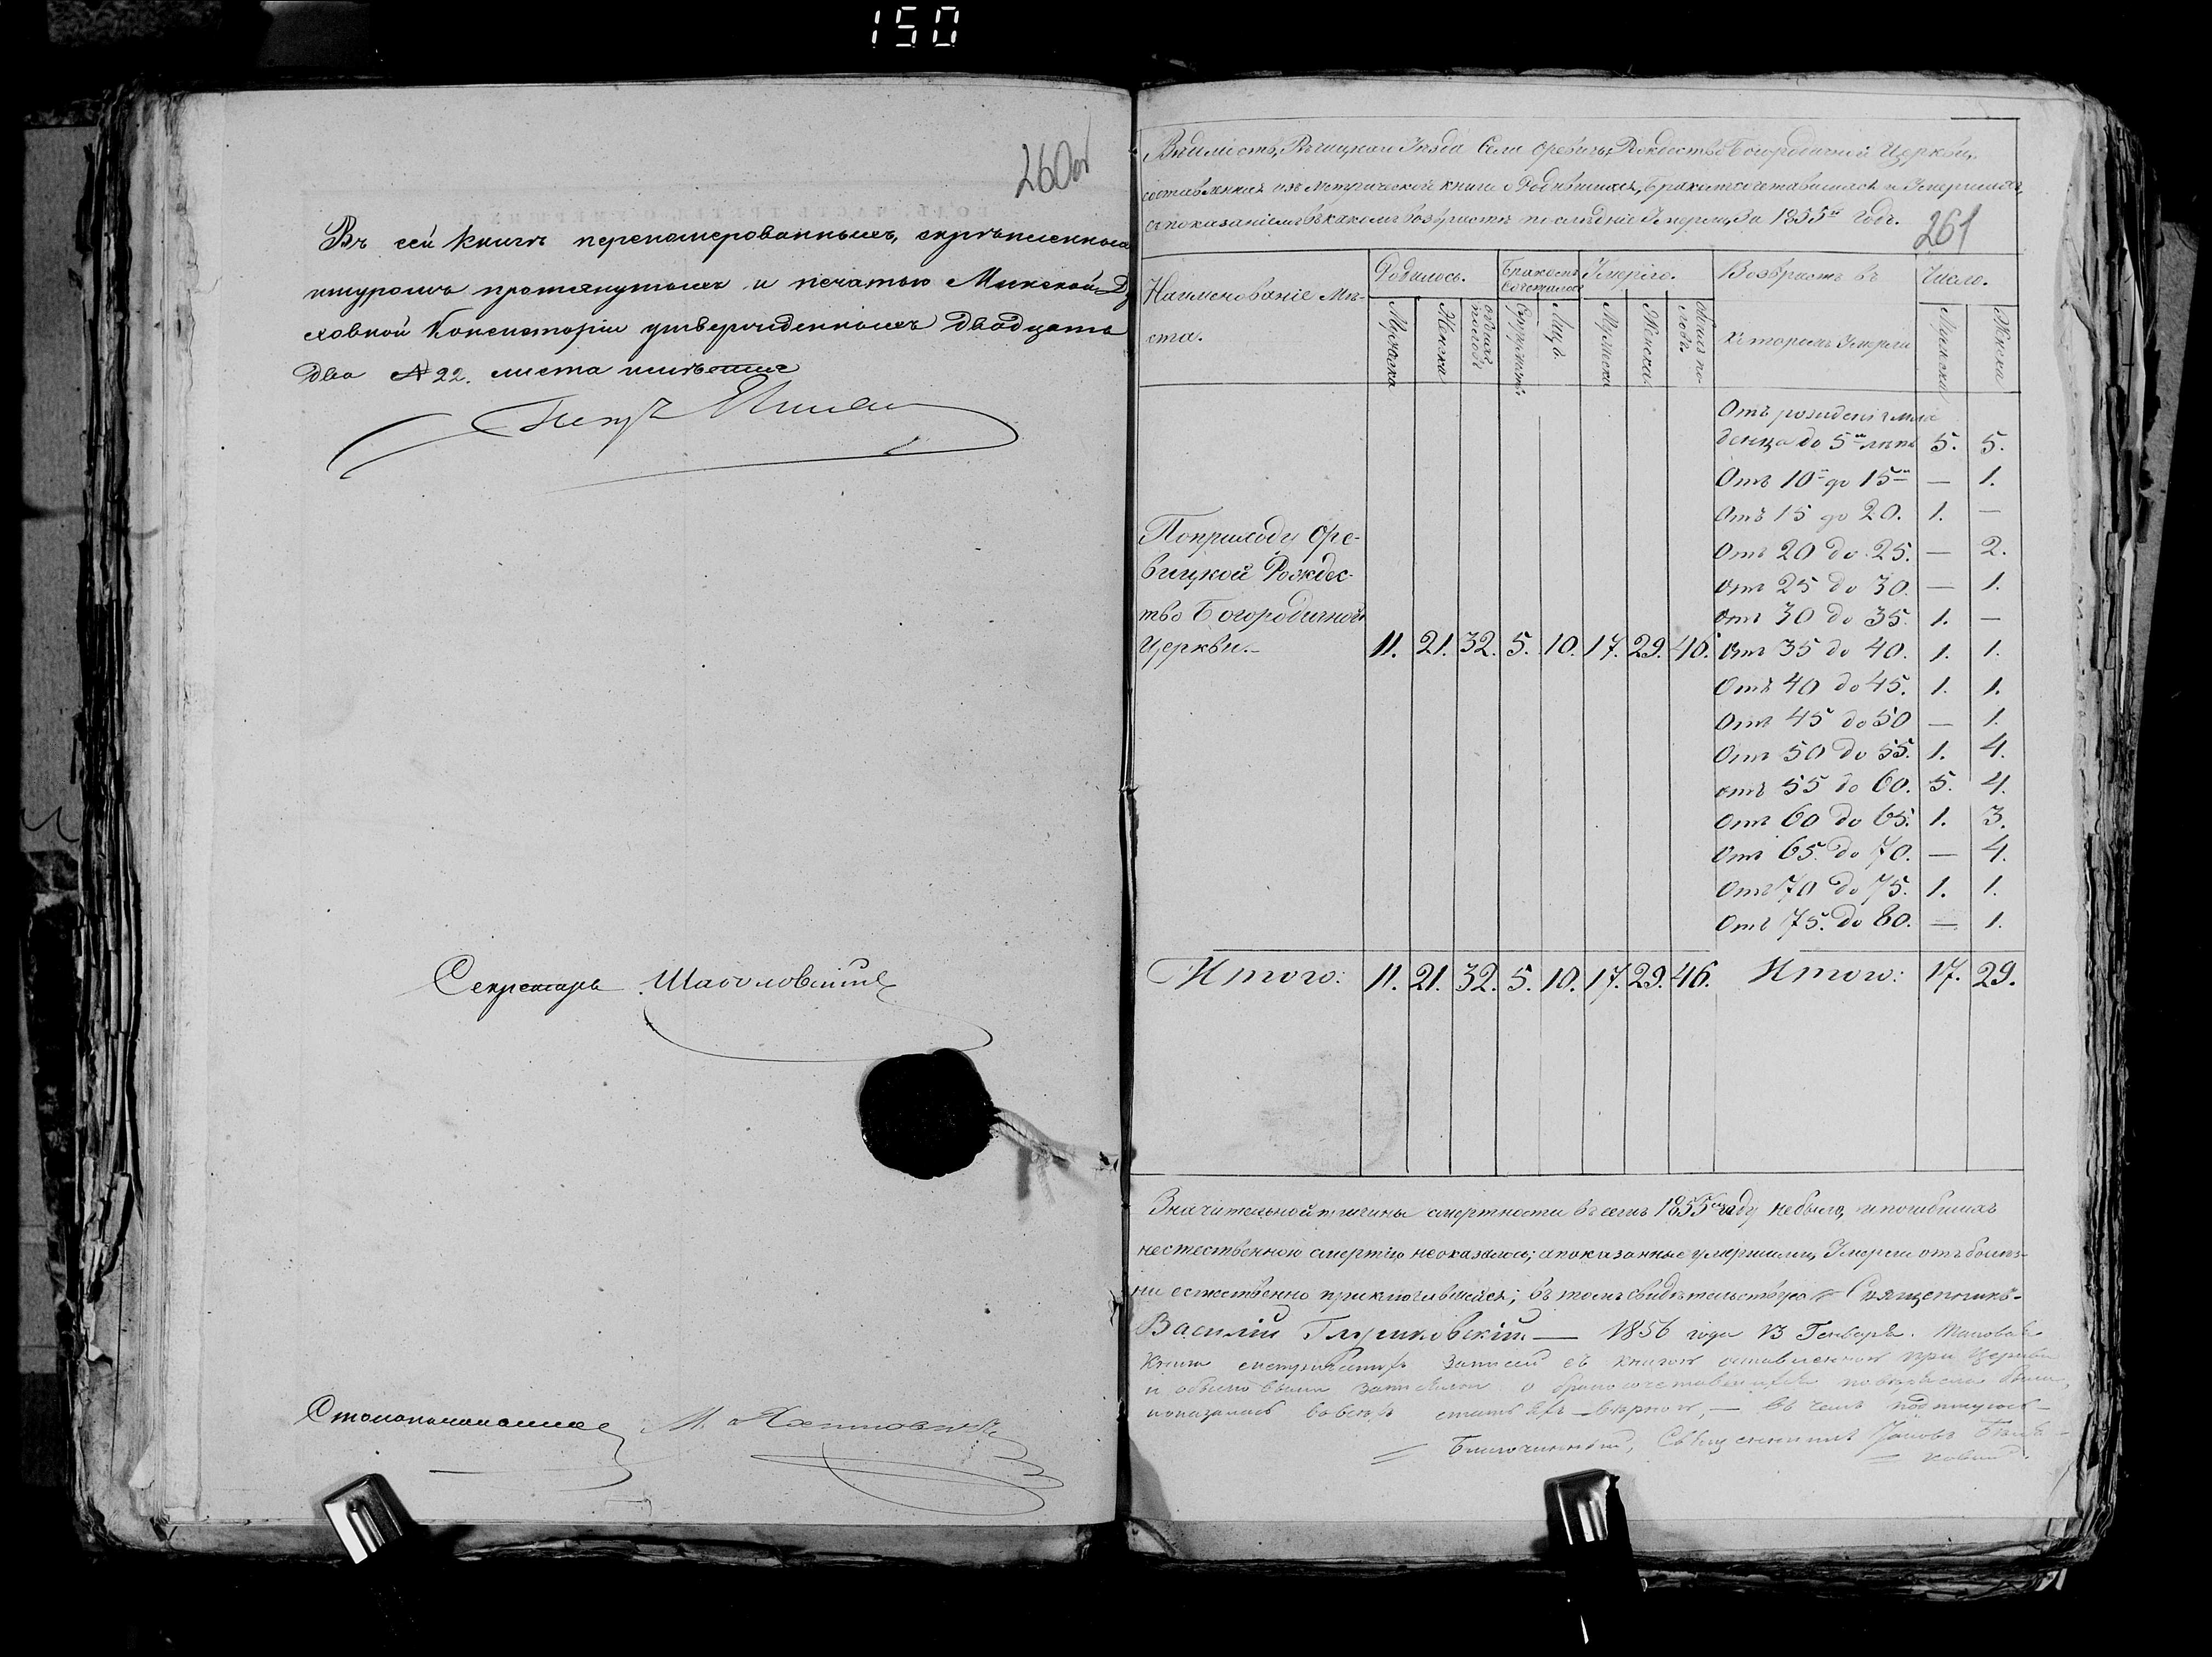 150
260об
Въ сей книгѣ перенумерованныхъ, скрѣпленныхъ
шнуромъ протянутыхъ и печатью Минской Ду
ховной Консисторіи утвержденныхъ двадцать
два № 22. листа
Секретарь
Столоначальникъ М.
Вѣдомость, Рѣчицкаго Уѣзда Села Оревичъ, Рождество Богородичной Церкви,
составленная изъ Метрической книги о Родившихся, Бракосочетавшихся и Умершихъ,
съ показаніемъ въ какомъ возрастѣ послѣдніе Умерли, За 1855й Годъ.
261
Наименованіе Мѣ-
ста.
Родилось. Бракомъ Сочеталось Умерло. Возврастъ въ Число.
которомъ Умерли
Мужеска Женска обоихъ половъ Супружествъ. Лицъ. Мужеска Женска. Обоихъ по-ловъ. Мужеска Женска
Отъ рожденія мла
денца до 5ти лѣтъ 5. 5.
Отъ 10 до 15 — 1.
Отъ 15 до 20. 1. —
Отъ 20 до 25. — 2.
Отъ 25 до 30. — 1.
Отъ 30 до 35. 1. —
По приходу Оре-
вицкой Рождес-
тво Богородичной
Церкви. 11. 21. 32. 5. 10. 17. 29. 46. Отъ 35 до 40. 1. 1.
Отъ 40 до 45. 1. 1.
Отъ 45 до 50 — 1.
Отъ 50 до 55. 1. 4.
Отъ 55 до 60. 5. 4.
Отъ 60 до 65. 1. 3.
Отъ 65. до 70. — 4.
Отъ 70 до 75. 1. 1.
Отъ 75. до 80. — 1.
Итого: 11. 21. 32. 5. 10. 17. 29. 46. Итого: 17. 29.
Значительной причины смертности въ семъ 1855мъ году небыло, и погибшихъ
неестественною смертію неоказалось; а показанные умершими, Умерли отъ болѣз-
ни естественно приключившейся; въ томъ свидѣтельствую Священникъ
Василій — 1856 года 13 Генваря. Таковая
книга записей съ книгою оставленною при Церкви
и о
показалась во всѣхъ статьяхъ вѣрною, — въ чемъ подписуюсь
Благочинный, Священникъ